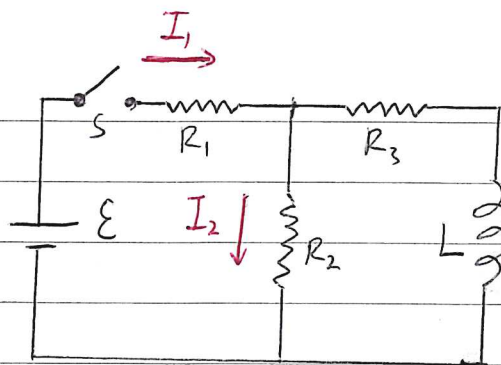 I₁
S
R₁
R₃
ε
I₂
R₂
L